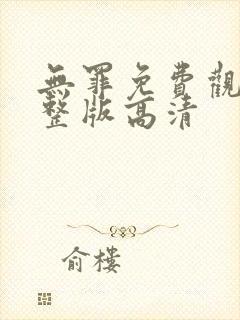 無罪免費觀
整版高清
俞樓